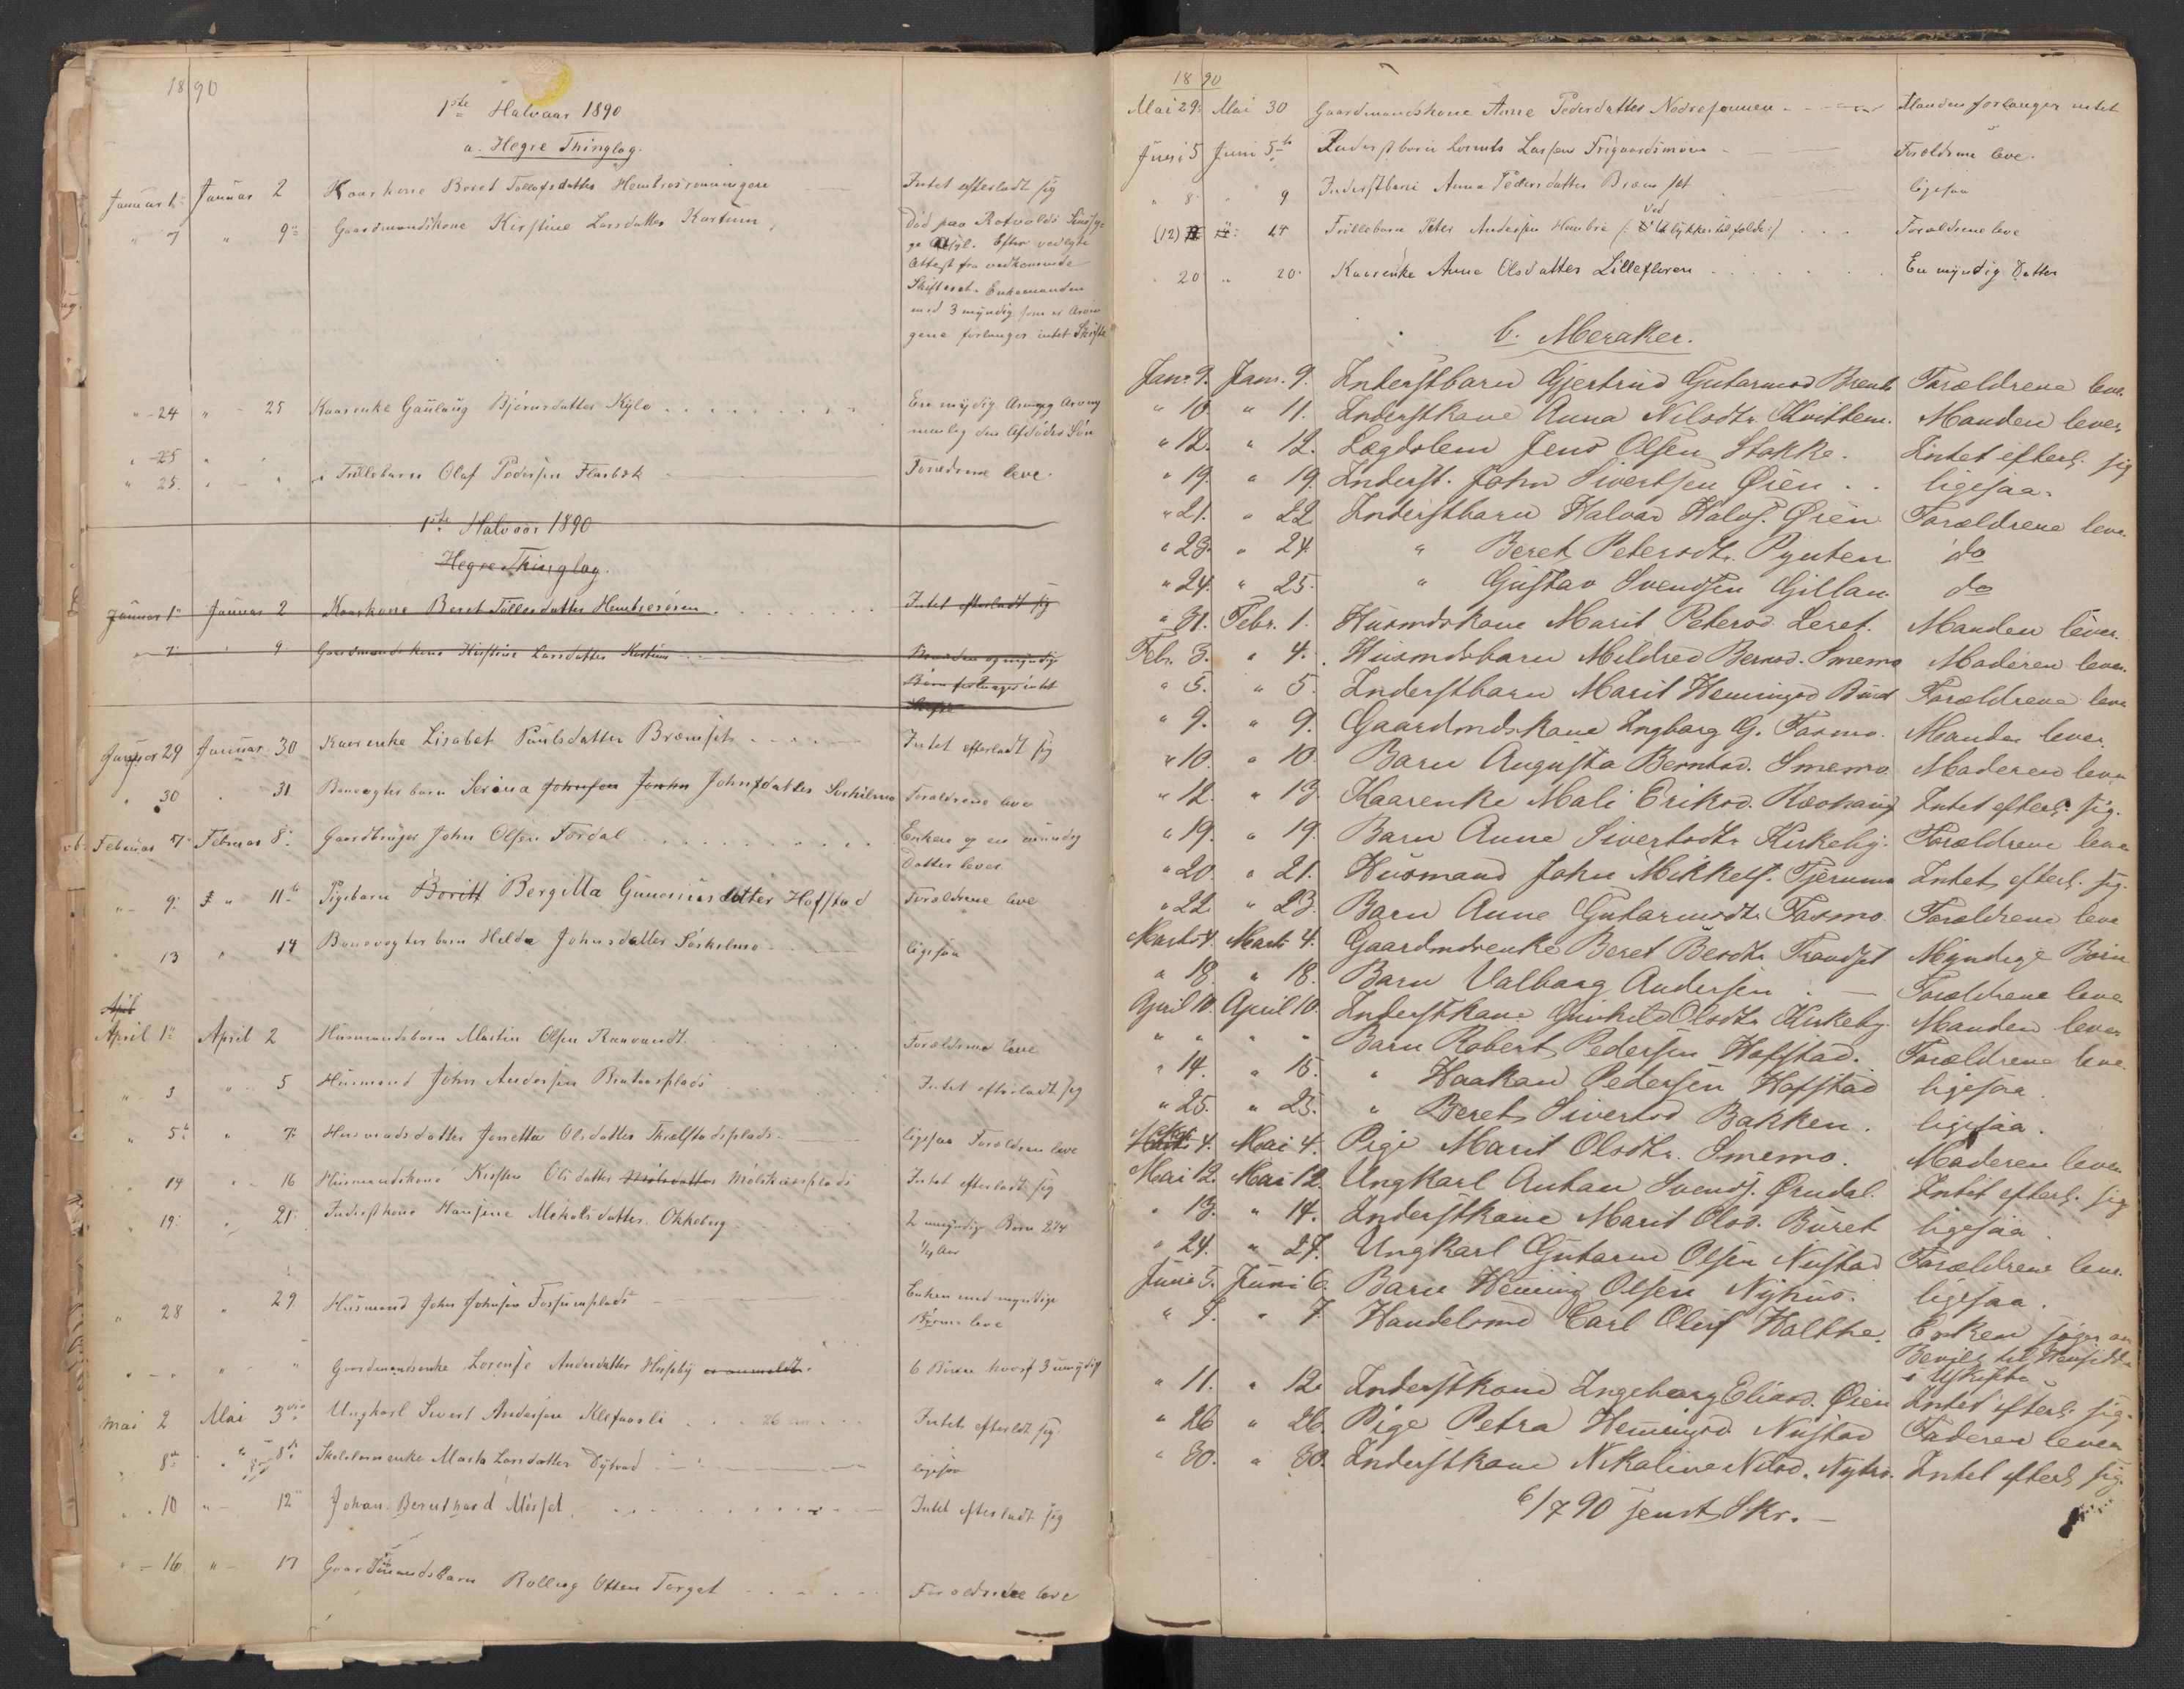 1890
1ste Halvaar 1890
a. Hegre Thinglag.
Januar 1. Januar 2 Kaarkone Beret Tollefsdatter Intet efterladt sig
" 7 " 9de Gaardmandskone Kirstine Larsdatter Kartum Död paa Rotvolds Sindssy-
ge Efter vedlagte
Attest fra vedkommende
Skifteret. Enkemanden
med 3 myndig
gene forlanger intet Skifte
" - 24 " - 25 Kaarenke Gaulaug Björnsdatter Kylo En mydig Arving
nemlig den Afdödes Sön
" 25 " "
" 25. " - " Tvillebarn Olaf Pedersen Flaabæk Forældrene leve.
1ste Halvaar 1890
Hegre Thinglag.
Januar 1. Januar 2 Kaarkone Beret Intet efterladt sig
" 7 " 9 Gaardmandskone Kirstine Larsdatter Kartum Manden og myndige
Börn forlanger intet
Skifte
Januar 29 Januar 30 Kaarenke Lisabet Paulsdatter Bræmset Intet efterladt sig
" 30 " 31 Banevogterbarn Johnsen John Johnsdatter Forældrene leve
Februar 7 Februar 8. Gaardbruger John Olsen Fordal Enken og en mündig
Datter lever
" - 9. " 11te Pigebarn Beritt Bergitta Gunerius datter Hofstad Forældrene leve
" 13 " 14 Banevogterbarn Helda Johnsdatter ligesaa
April
April 1. April 2 Husmandsbarn Martin Olsen Raavandt Forældrene leve
" 3 " 5 Husmand John Andersen Brataasplads Intet efterladt sig
" 5. " 7. Husmandsdatter Jonetta Olsdatter ligesaa Forældrene leve
" 14 " - 16 Husmandskone Kirsten Olsdatter Intet efterladt sig
" 19. " 21. Inderstkone Hansine Mikalsdatter Okkeberg 2 umyndige Börn 2 3/4
1/4 Aar
" 28 " 29 Husmand John Johnsen Fossumplads Enken med myndige
Börn leve
" - " " " Gaardmandsenke Lorense Andersdatter Husby er anmeldt. 6 Börn hvoraf 3 umydig
Mai 2 Mai 3die Ungkarl Sivert Andersen Klefsaasli 26 Intet efterladt sig
" 8de " 8de enke Marta Larsdatter Dybvad ligesaa
" . 10 " - 12te Johan Bernthard Mösset Intet efterladt sig
" - 16 " - 17 Gaardmandsbarn Rolleug Otten Forældrene leve
1890
Mai 29. Mai 30 Gaardmandskone Anne Pedersdatter Manden forlanger intet
Juni 5 Juni 5te Inderstbarn Larsen Forældrene leve.
" 8. " 9 Inderstbarn Anna Pedersdatter Bræmset ligesaa
(12) 14 Tvillebarn Peter Andersen Hembre (: Ved Ulykkestilfælde :) Forældrene leve
" 20 " 20. Kaarenke Anne Olsdatter Lillefloren En myndig Datter
b. Meraker.
Janr. 9. Janr. 9. Inderstbarn Gjertrud Gutormsd Forældrene leve.
" 10. " 11. Inderstkone Anna Nilsdtr. Kvittem. Manden lever
" 12. " 12. Lægdslem Jens Olsen Stokke. Intet efterl. sig
" 19. " 19. Inderst. John Sivertsen Øien . . ligesaa.
" 21. " 22. Inderstbarn Halvar Halvs. Øien Forældrene leve.
" 23. " 24. " Beret Petersdtr. Pynten do
" 24. " 25. " Gustav Svendsen Gillan do
" 31. Febr. 1. Husmdskone Marit Petersd. Leret. Manden lever.
Febr. 3. " 4. Husmdsbarn Mildred Bernsd. Smemo Moderen lever.
" 5. " 5. Inderstbarn Marit Hemingsd Forældrene leve
" 9. " 9. Gaardmdskone Ingborg G. Fasmo. Manden lever
" 10. " 10. Barn Augusta Berntsd. Smemo. Moderen leve
" 12. " 13. Kaarenke Mali Eriksd. Intet efterl. sig.
" 19. " 19. Barn Anne Sivertsdtr. Kirkeby. Forældrene leve
" 20. " 21. Husmand John Mikkels. Tjernmo Intet efterl. sig.
" 22 " 23. Barn Anne Gutormsdtr. Fasmo. Forældrene leve
Marts 4. Marts 4. Gaardmdsenke Beret Myndige Börn
" 18. " 18. Barn Valborg Andersen . — Forældrene leve.
April 10. April 10. Inderstkone Gunhild Olsdtr. Kirkeby. Manden lever
" " " " Barn Robert Pedersen Hofstad. Forældrene leve.
" 14. " 15. " Haakon Pedersen Hofstad ligesaa.
" 25. " 25. " Beret Sivertsd Bakken. ligesaa.
4. Mai 4. Pige Marit Olsdtr. Smemo. Moderen lever
Mai 12. Mai 12. Ungkarl Anton Svends. Ørndal. Intet efterl. sig
" 13. " 14. Inderstkone Marit Olsd. Buret ligesaa.
" 24. " 27. Ungkarl Gutorm Olsen Nustad Forældrene leve.
Juni 5. Juni 6. Barn Heming Olsen Nyhus. ligesaa.
" 7. " 7. Handelsmd Carl Oluf Holthe. Enken søger om
Bevil. til Hensidden
i Uskiftet
" 11. " 12. Inderstkone Ingeborg Eliasd. Øien Intet efterl. sig.
" 26 " 26. Pige Petra Hemingsd. Nustad Faderen lever
" 30. " 30. Inderstkone Nikoline Nilsd. Nyhus. Intet efterl. sig.
6/7 90 sendt Skr. —